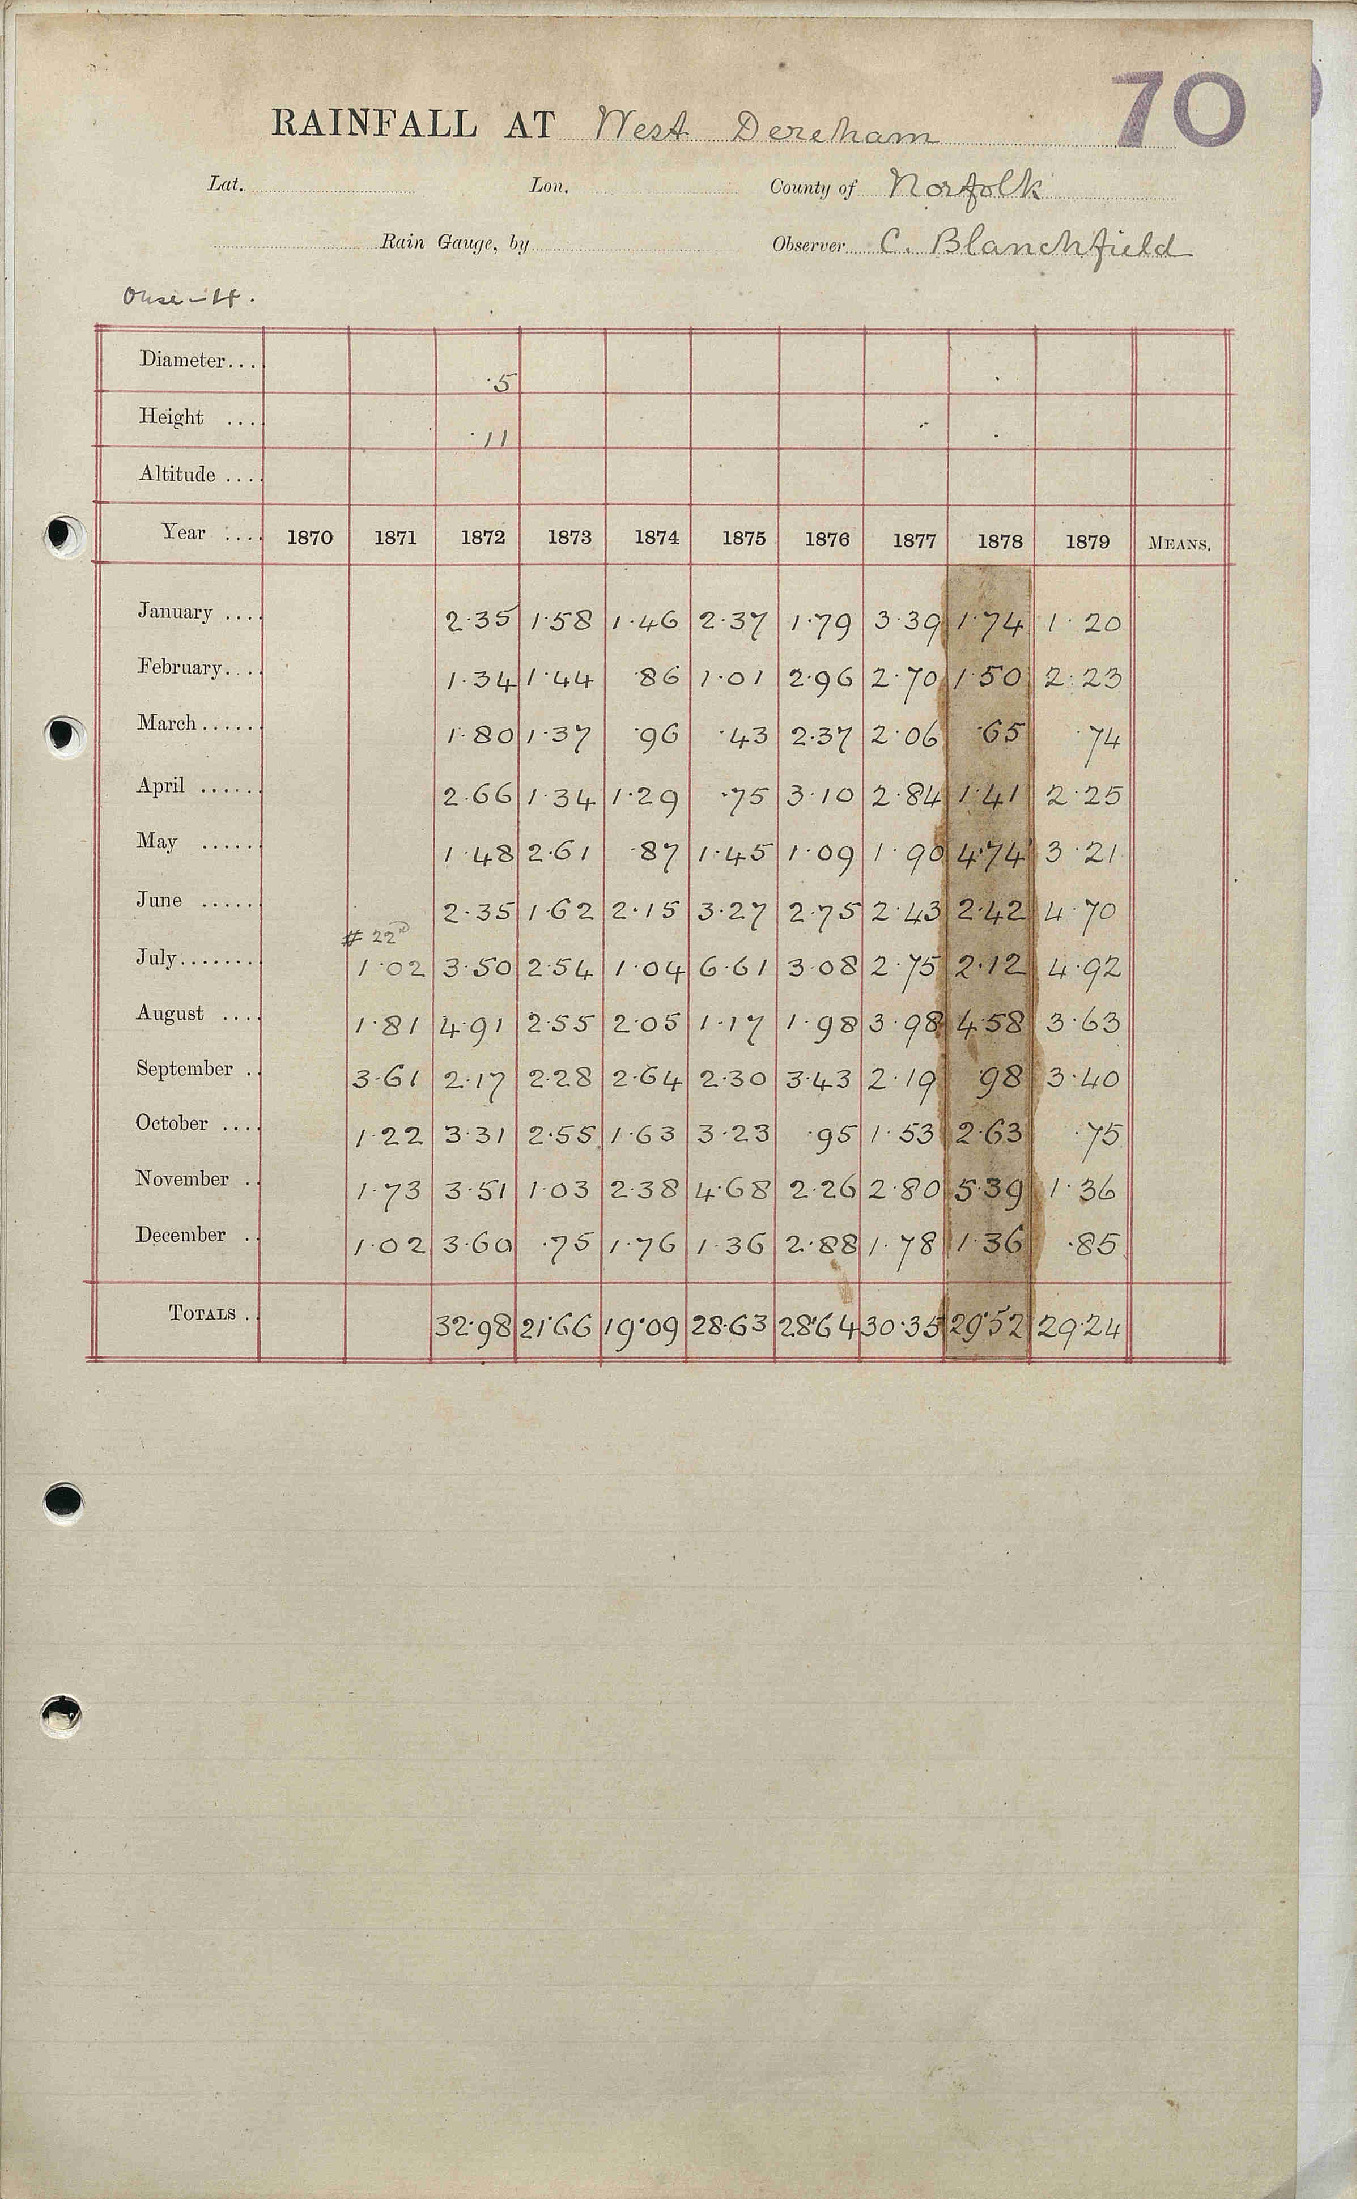 70
RAINFALL AT West Dereham
Lat. Lon. County of Norfolk
Rain Gauge, by Observer C. Blanchfield
Ouse - 4.
Diameter... ·5
Height ... ·11
Altitude ...
Year ... 1870 1871 1872 1873 1874 1875 1876 1877 1878 1879 MEANS.
January .... 2·35 1·58 1·46 2·37 1·79 3·39 1·74 1·20
February.... 1·34 1·44 ·86 1·01 2·96 2·70 1·50 2·23
March...... 1·80 1·37 ·96 ·43 2·37 2·06 ·65 ·74
April ...... 2·66 1·34 1·29 ·75 3·10 2·84 1·41 2·25
May ...... 1·48 2·61 ·87 1·45 1·09 1·90 4·74 3·21
June ...... 2·35 1·62 2·15 3·27 2·75 2·43 2·42 4·70
# 22nd
July........ 1·02 3·50 2·54 1·04 6·61 3·08 2·75 2·12 4·92
August .... 1·81 4·91 2·55 2·05 1·17 1·98 3·98 4·58 3·63
September .. 3·61 2·17 2·28 2·64 2·30 3·43 2·19 ·98 3·40
October .... 1·22 3·31 2·55 1·63 3·23 ·95 1·53 2·63 ·75
November .. 1·73 3·51 1·03 2·38 4·68 2·26 2·80 5·39 1·36
December .. 1·02 3·60 ·75 1·76 1·36 2·88 1·78 1·36 ·85
TOTALS .. 32·98 21·66 19·09 28·63 28·64 30·35 29·52 29·24